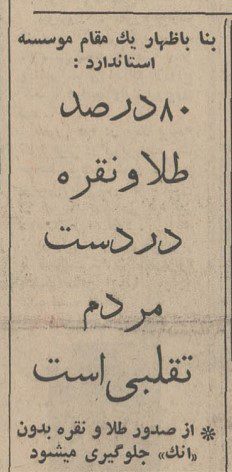 بنا باظهار یك مقام موسسه
استاندارد :
۸۰درصد
طلا و نقره
در دست
مردم
تقلبی است
* از صدور طلا و نقره بدون
«انك» جلوگیری میشود